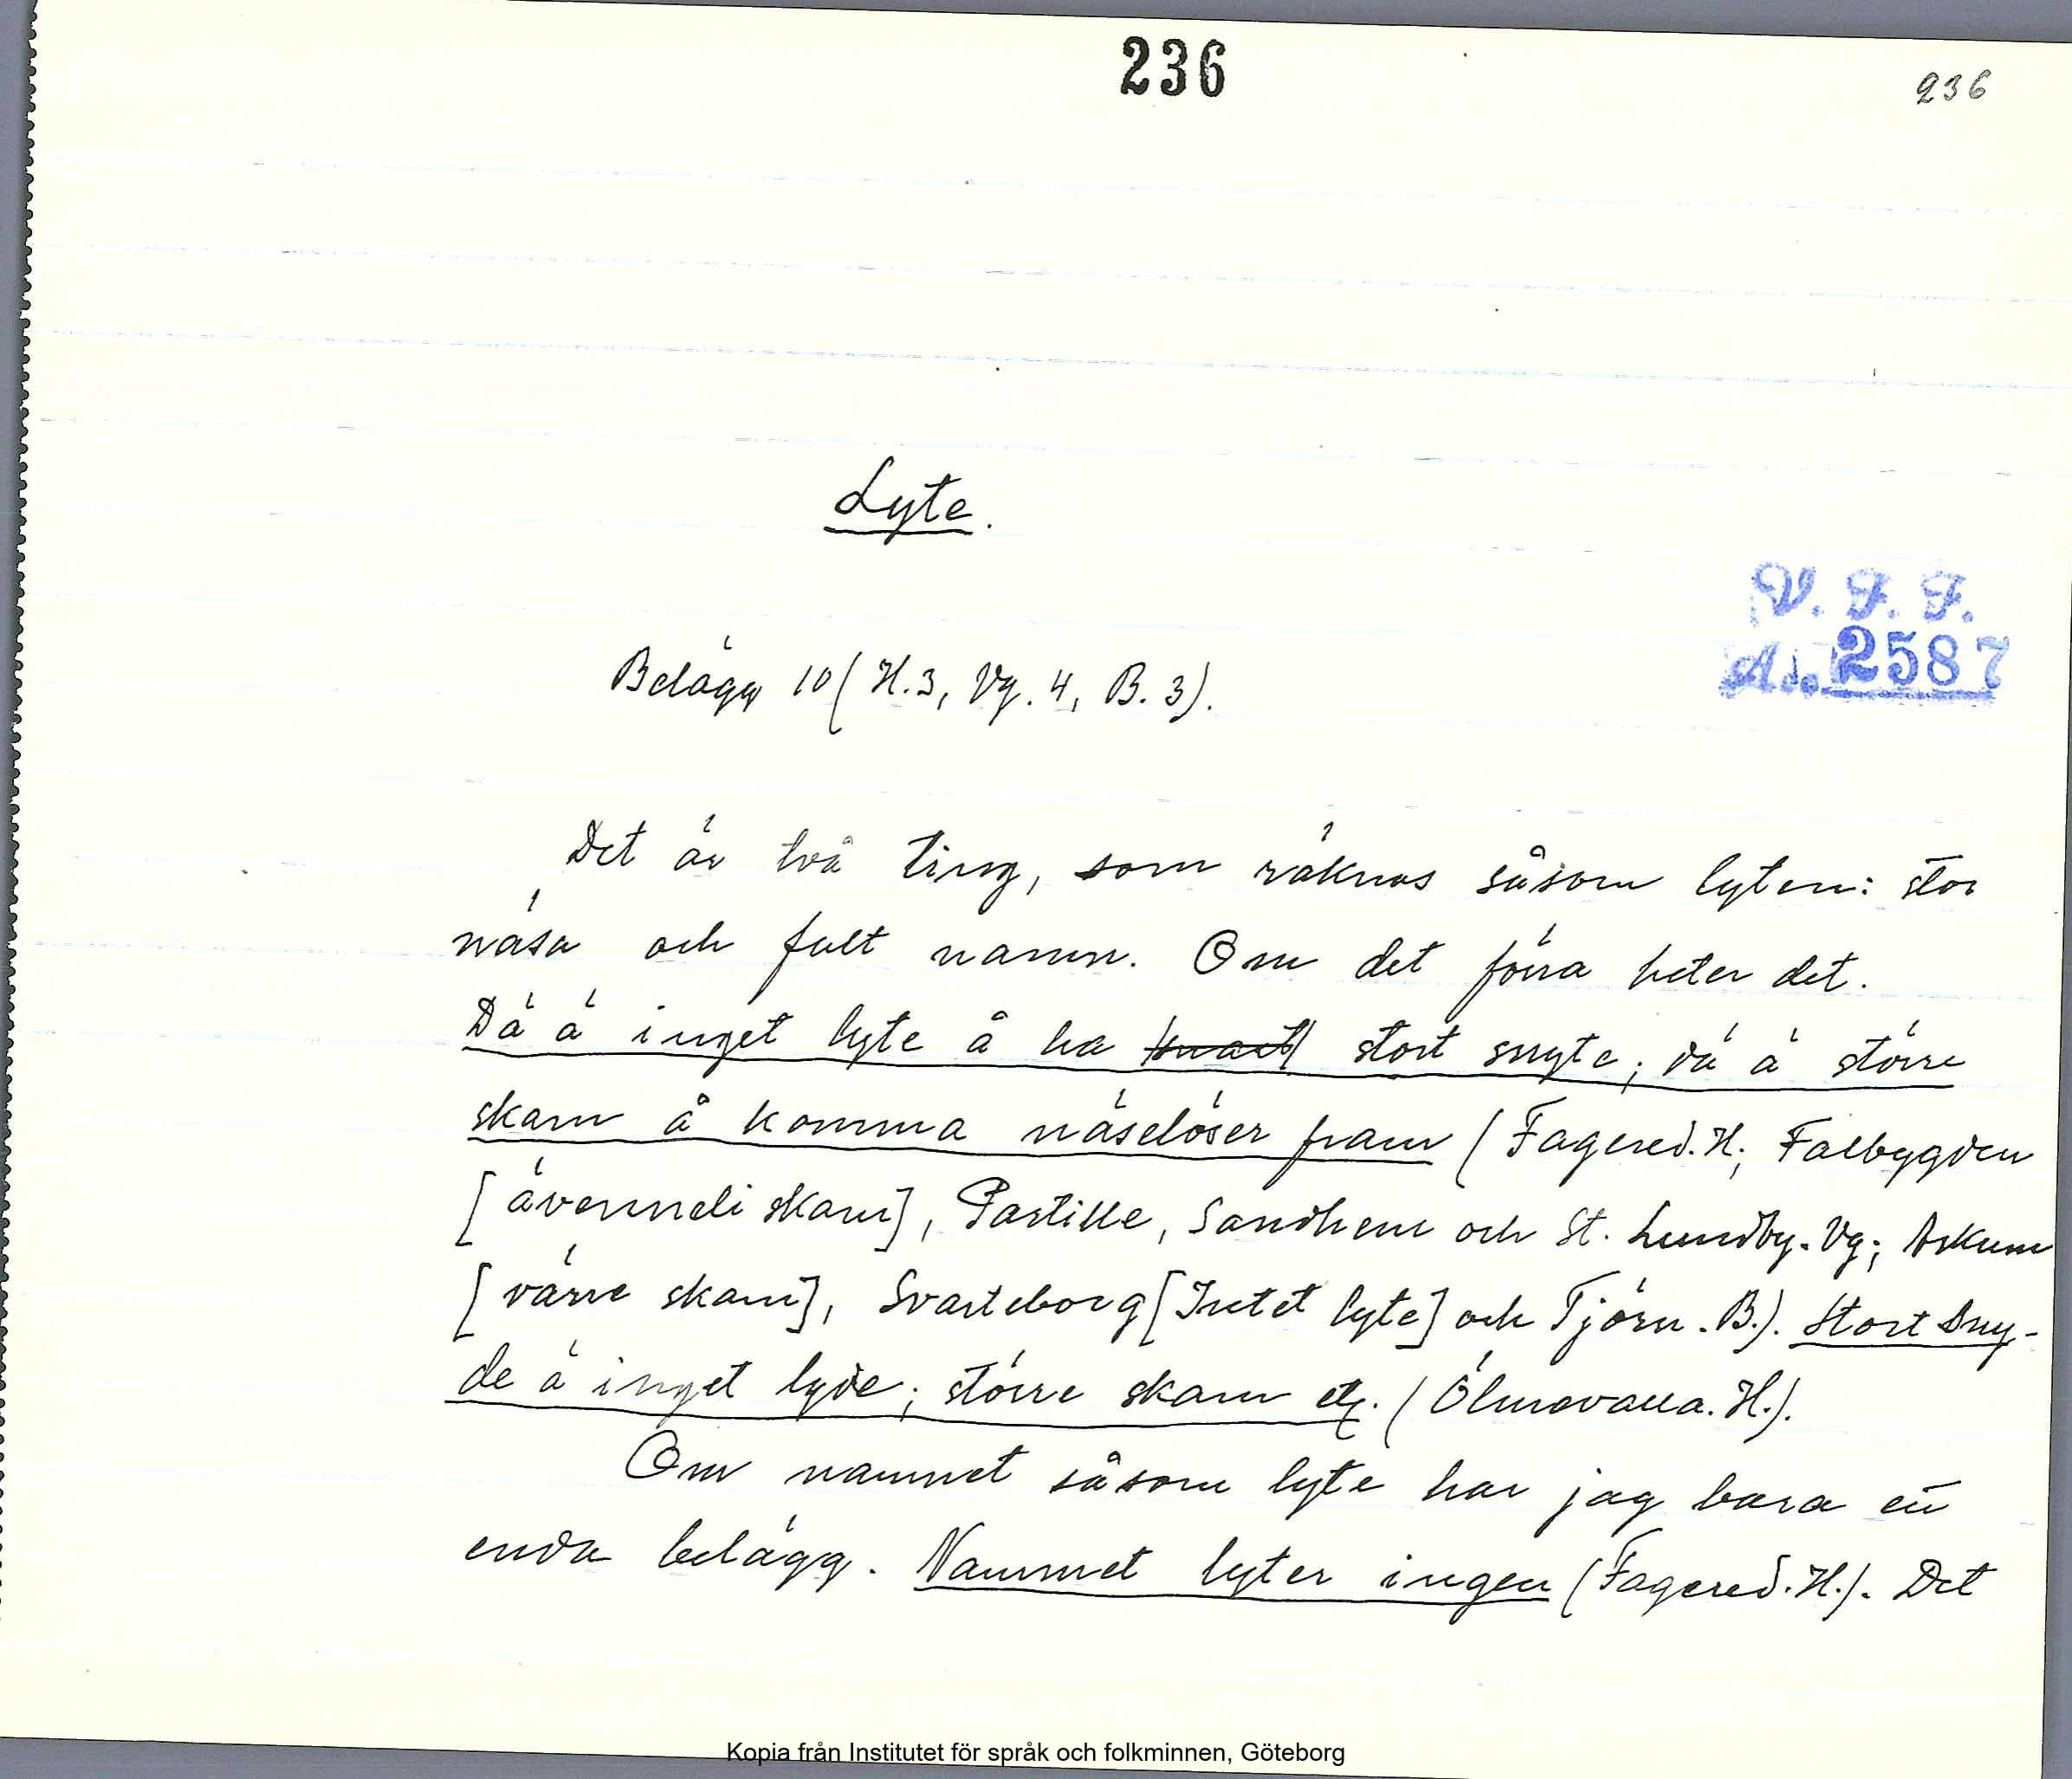 236
236
Lyte.
V. F. F.
A. 2587
Belägg 10 (H. 3, Vg. 4, B. 3).
Det är två ting, som räknas såsom lyten: stor
näsa och fult namn. Om det förra heter det.
Dä ä inget lyte å ha stort snyte; dä ä större
skam å komma näselöser fram (Fagered. H; Falbygden
[ävenneli skam], Partille, Sandhem och St. Lundby. Vg; Askum
[värre skam], Svarteborg [Intet lyte] och Tjörn. B.). Stort sny-
de ä inget lyde; större skam etc. (Ölmevalla. H.).
Om namnet såsom lyte har jag bara en
enda belägg. Nammet lyter ingen (Fagered. H.). Det
Kopia från Institutet för språk och folkminnen, Göteborg